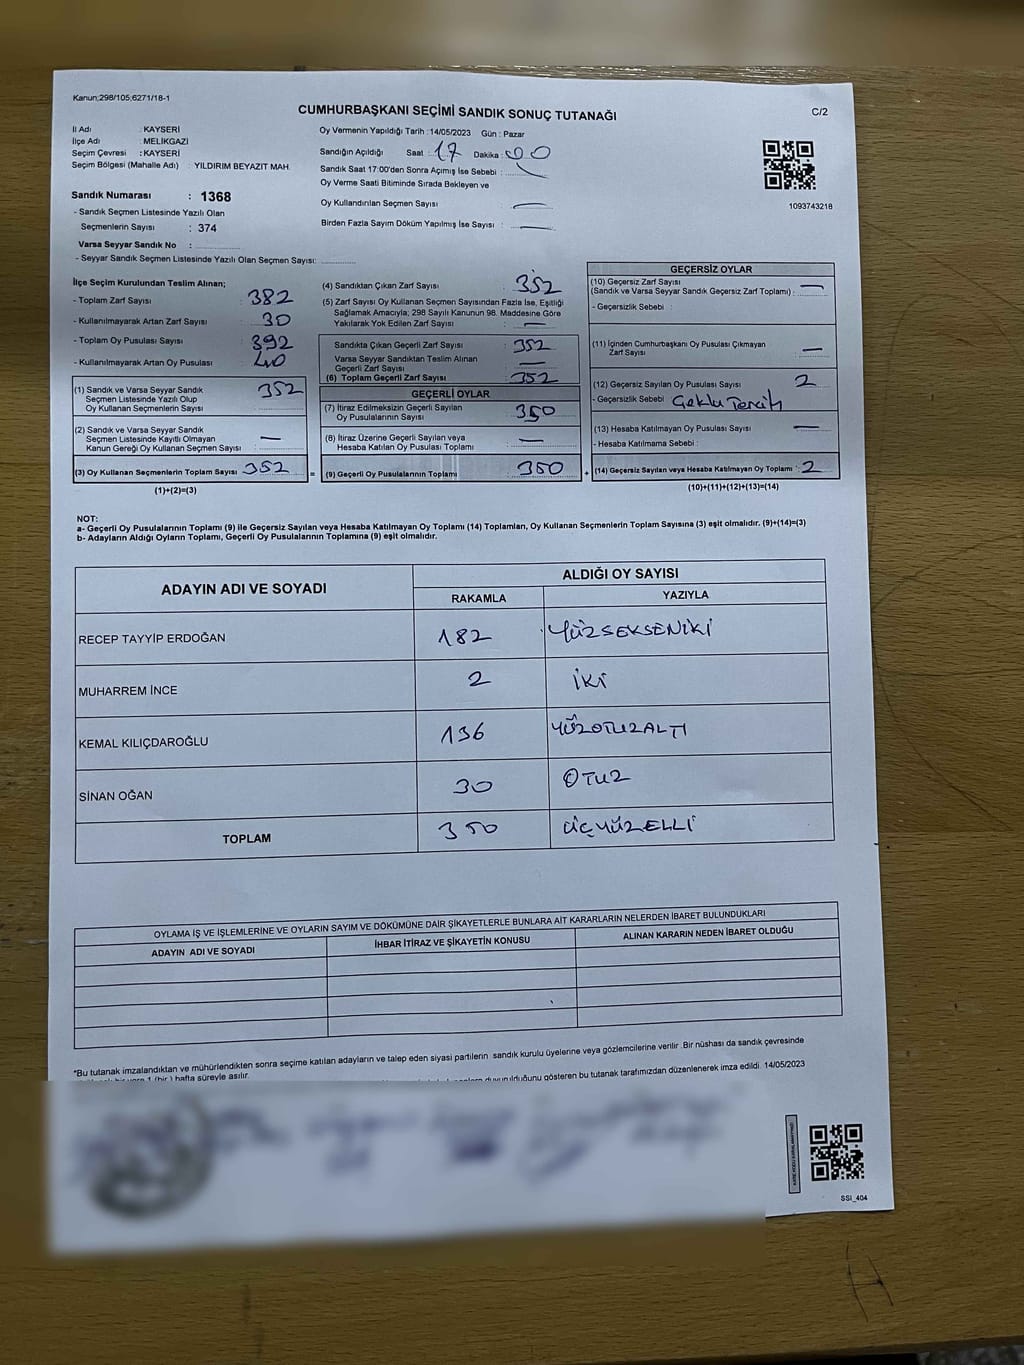 Kanun;298/105;6271/18-1
CUMHURBAŞKANI SEÇİMİ SANDIK SONUÇ TUTANAĞI
C/2
İl Adı : KAYSERİ
İlçe Adı : MELİKGAZİ
Seçim Çevresi : KAYSERİ
Seçim Bölgesi (Mahalle Adı) : YILDIRIM BEYAZIT MAH.
Sandık Numarası : 1368
- Sandık Seçmen Listesinde Yazılı Olan
Seçmenlerin Sayısı : 374
Varsa Seyyar Sandık No :
- Seyyar Sandık Seçmen Listesinde Yazılı Olan Seçmen Sayısı:
Oy Vermenin Yapıldığı Tarih :14/05/2023 Gün : Pazar
Sandığın Açıldığı Saat : 17 Dakika : 00
Sandık Saat 17:00'den Sonra Açımış İse Sebebi :
Oy Verme Saati Bitiminde Sırada Bekleyen ve
Oy Kullandırılan Seçmen Sayısı : —
Birden Fazla Sayım Döküm Yapılmış İse Sayısı : —
1093743218
İlçe Seçim Kurulundan Teslim Alınan;
- Toplam Zarf Sayısı : 382
- Kullanılmayarak Artan Zarf Sayısı : 30
- Toplam Oy Pusulası Sayısı : 392
- Kullanılmayarak Artan Oy Pusulası : 40
(1) Sandık ve Varsa Seyyar Sandık
Seçmen Listesinde Yazılı Olup
Oy Kullanan Seçmenlerin Sayısı : 352
(2) Sandık ve Varsa Seyyar Sandık
Seçmen Listesinde Kayıtlı Olmayan
Kanun Gereği Oy Kullanan Seçmen Sayısı : —
(3) Oy Kullanan Seçmenlerin Toplam Sayısı : 352
(1)+(2)=(3)
(4) Sandıktan Çıkan Zarf Sayısı : 352
(5) Zarf Sayısı Oy Kullanan Seçmen Sayısından Fazla İse, Eşitliği
Sağlamak Amacıyla; 298 Sayılı Kanunun 98. Maddesine Göre
Yakılarak Yok Edilen Zarf Sayısı : —
Sandıkta Çıkan Geçerli Zarf Sayısı : 352
Varsa Seyyar Sandıktan Teslim Alınan
Geçerli Zarf Sayısı : —
(6) Toplam Geçerli Zarf Sayısı : 352
GEÇERLİ OYLAR
(7) İtiraz Edilmeksizin Geçerli Sayılan
Oy Pusulalarının Sayısı : 350
(8) İtiraz Üzerine Geçerli Sayılan veya
Hesaba Katılan Oy Pusulası Toplamı : —
= (9) Geçerli Oy Pusulalarının Toplamı : 350 +
GEÇERSİZ OYLAR
(10) Geçersiz Zarf Sayısı
(Sandık ve Varsa Seyyar Sandık Geçersiz Zarf Toplamı) : —
- Geçersizlik Sebebi :
(11) İçinden Cumhurbaşkanı Oy Pusulası Çıkmayan
Zarf Sayısı : —
(12) Geçersiz Sayılan Oy Pusulası Sayısı : 2
- Geçersizlik Sebebi : Tercih
(13) Hesaba Katılmayan Oy Pusulası Sayısı : —
- Hesaba Katılmama Sebebi :
(14) Geçersiz Sayılan veya Hesaba Katılmayan Oy Toplamı : 2
(10)+(11)+(12)+(13)=(14)
NOT:
a- Geçerli Oy Pusulalarının Toplamı (9) ile Geçersiz Sayılan veya Hesaba Katılmayan Oy Toplamı (14) Toplamları, Oy Kullanan Seçmenlerin Toplam Sayısına (3) eşit olmalıdır. (9)+(14)=(3)
b- Adayların Aldığı Oyların Toplamı, Geçerli Oy Pusulalarının Toplamına (9) eşit olmalıdır.
ADAYIN ADI VE SOYADI
ALDIĞI OY SAYISI
RAKAMLA YAZIYLA
RECEP TAYYİP ERDOĞAN 182 YÜZSEKSENİKİ
MUHARREM İNCE 2 İKİ
KEMAL KILIÇDAROĞLU 136 YÜZOTUZALTI
SİNAN OĞAN 30 OTUZ
TOPLAM 350 ÜÇYÜZELLİ
OYLAMA İŞ VE İŞLEMLERİNE VE OYLARIN SAYIM VE DÖKÜMÜNE DAİR ŞİKAYETLERLE BUNLARA AİT KARARLARIN NELERDEN İBARET BULUNDUKLARI
ADAYIN ADI VE SOYADI İHBAR İTİRAZ VE ŞİKAYETİN KONUSU ALINAN KARARIN NEDEN İBARET OLDUĞU
*Bu tutanak imzalandıktan ve mühürlendikten sonra seçime katılan adayların ve talep eden siyasi partilerin sandık kurulu üyelerine veya gözlemcilerine verilir .Bir nüshası da sandık çevresinde
1 (bir ) hafta süreyle asılır.
duyurulduğunu gösteren bu tutanak tarafımızdan düzenlenerek imza edildi. 14/05/2023
SSI_404